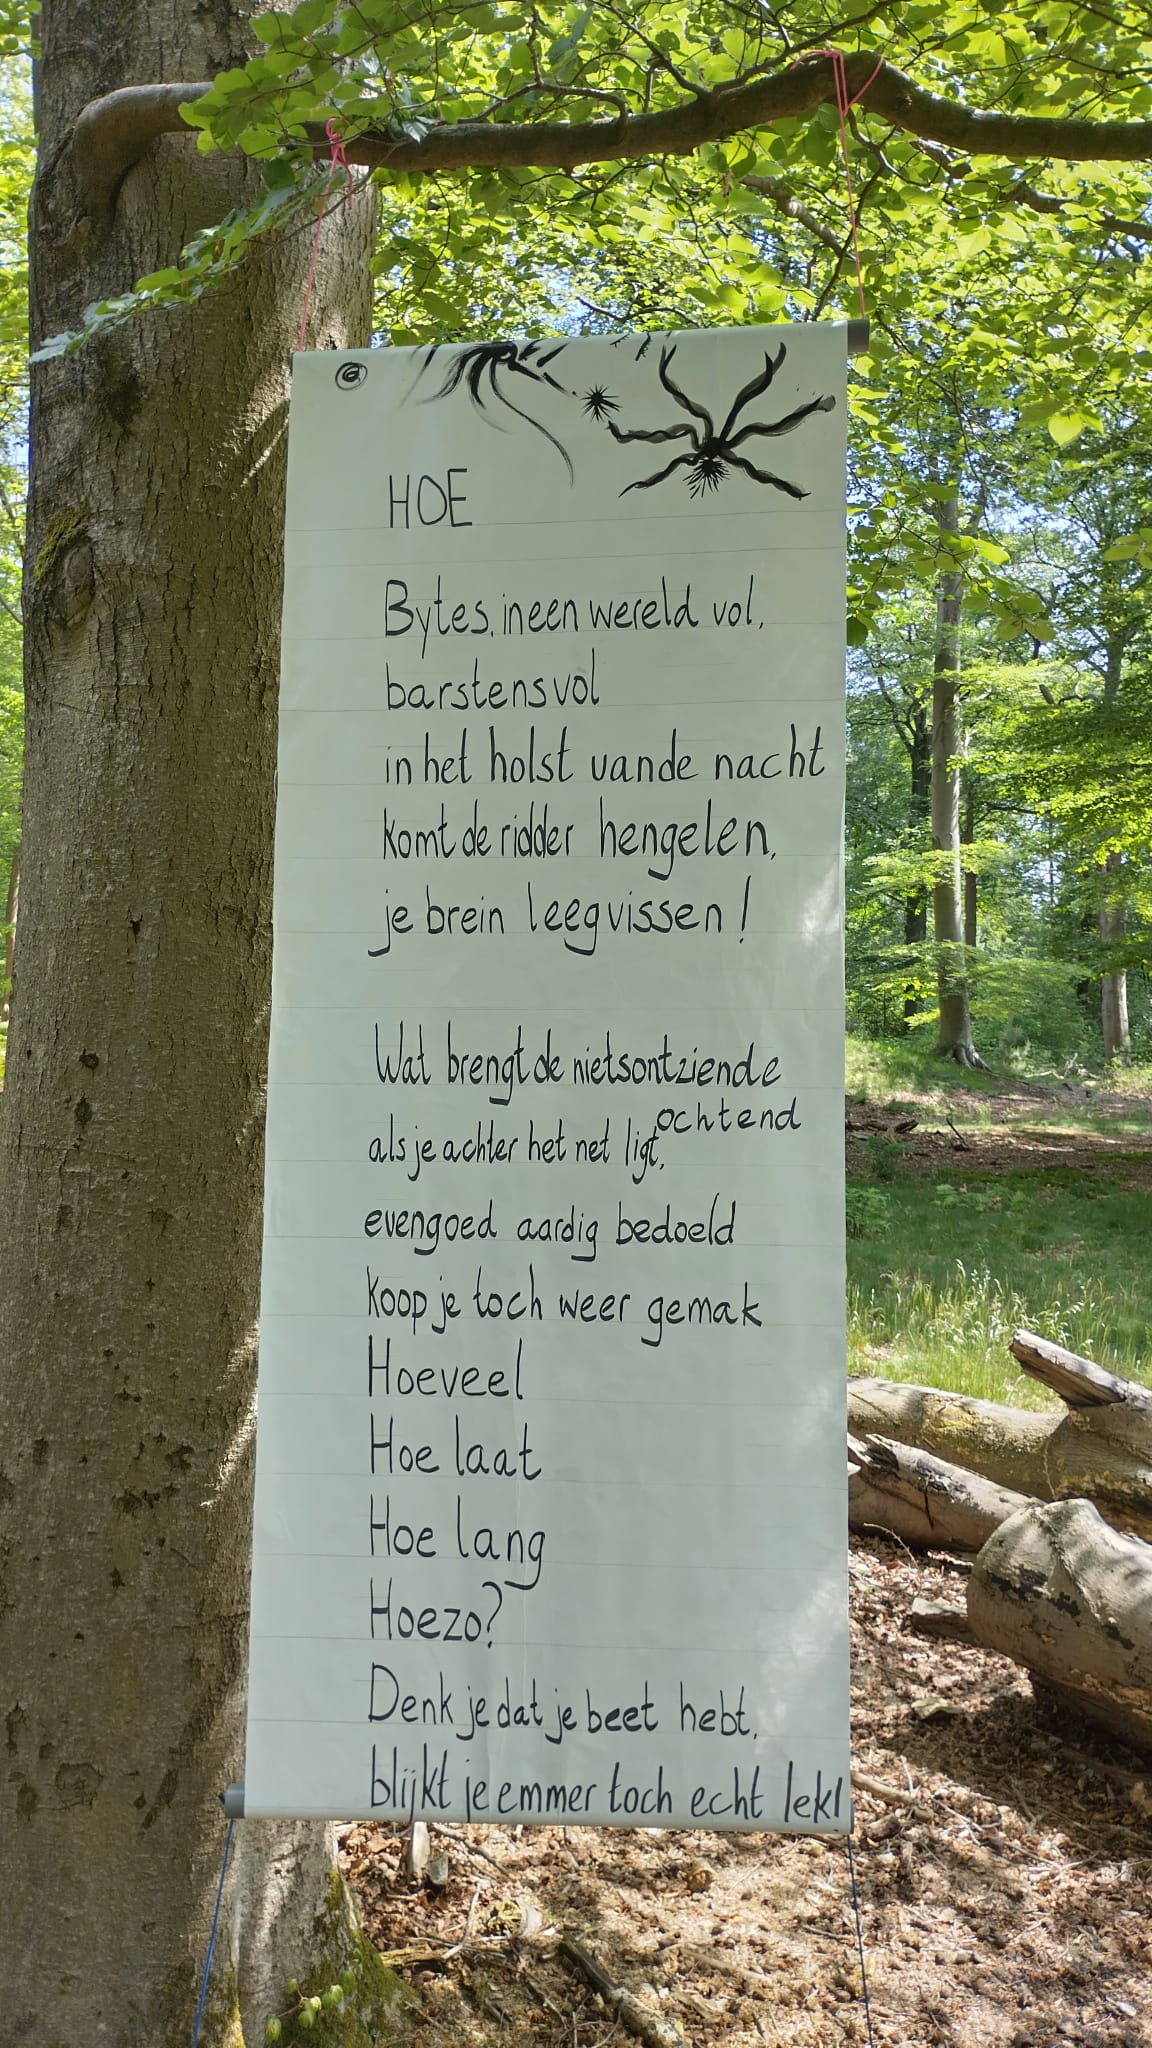 6
HOE
Bytes, in een wereld vol,
barstensvol
in het holst van de nacht
komt de ridder hengelen,
je brein leegvissen!
Wat brengt de nietsontziende
ochtend
als je achter het net ligt,
evengoed aardig bedoeld
koop je toch weer gemak
Hoeveel
Hoe laat
Hoe lang
Hoezo?
Denk je dat je beet hebt,
blijkt je emmer toch echt lek!